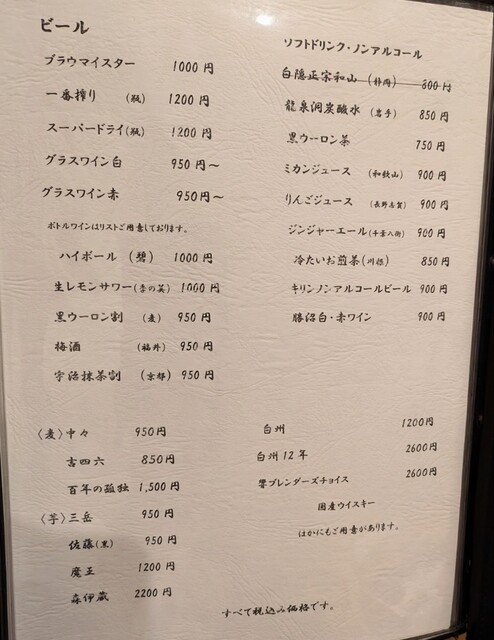 ビール
ブラウマイスター 1000円
一番搾り (瓶) 1200円
スーパードライ(瓶) 1200円
グラスワイン白 950円～
グラスワイン赤 950円～
ボトルワインはリストご用意しております。
ハイボール (碧) 1000円
生レモンサワー(李の英) 1000円
黒ウーロン割 (麦) 950円
梅酒 (福井) 950円
宇治抹茶割 (京都) 950円
〈麦〉中々 950円
吉四六 850円
百年の孤独 1,500円
〈芋〉三岳 950円
佐藤(黒) 950円
魔王 1200円
森伊蔵 2200円
ソフトドリンク・ノンアルコール
白隠正宗和山 (静岡) 800円
龍泉洞炭酸水 (岩手) 850円
黒ウーロン茶 750円
ミカンジュース (和歌山) 900円
りんごジュース (長野志賀) 900円
ジンジャーエール(千葉八街) 900円
冷たいお煎茶(川根) 850円
キリンノンアルコールビール 900円
勝沼白・赤ワイン 900円
白州 1200円
白州12年 2600円
響ブレンダーズチョイス 2600円
国産ウイスキー
ほかにもご用意があります。
すべて税込み価格です。